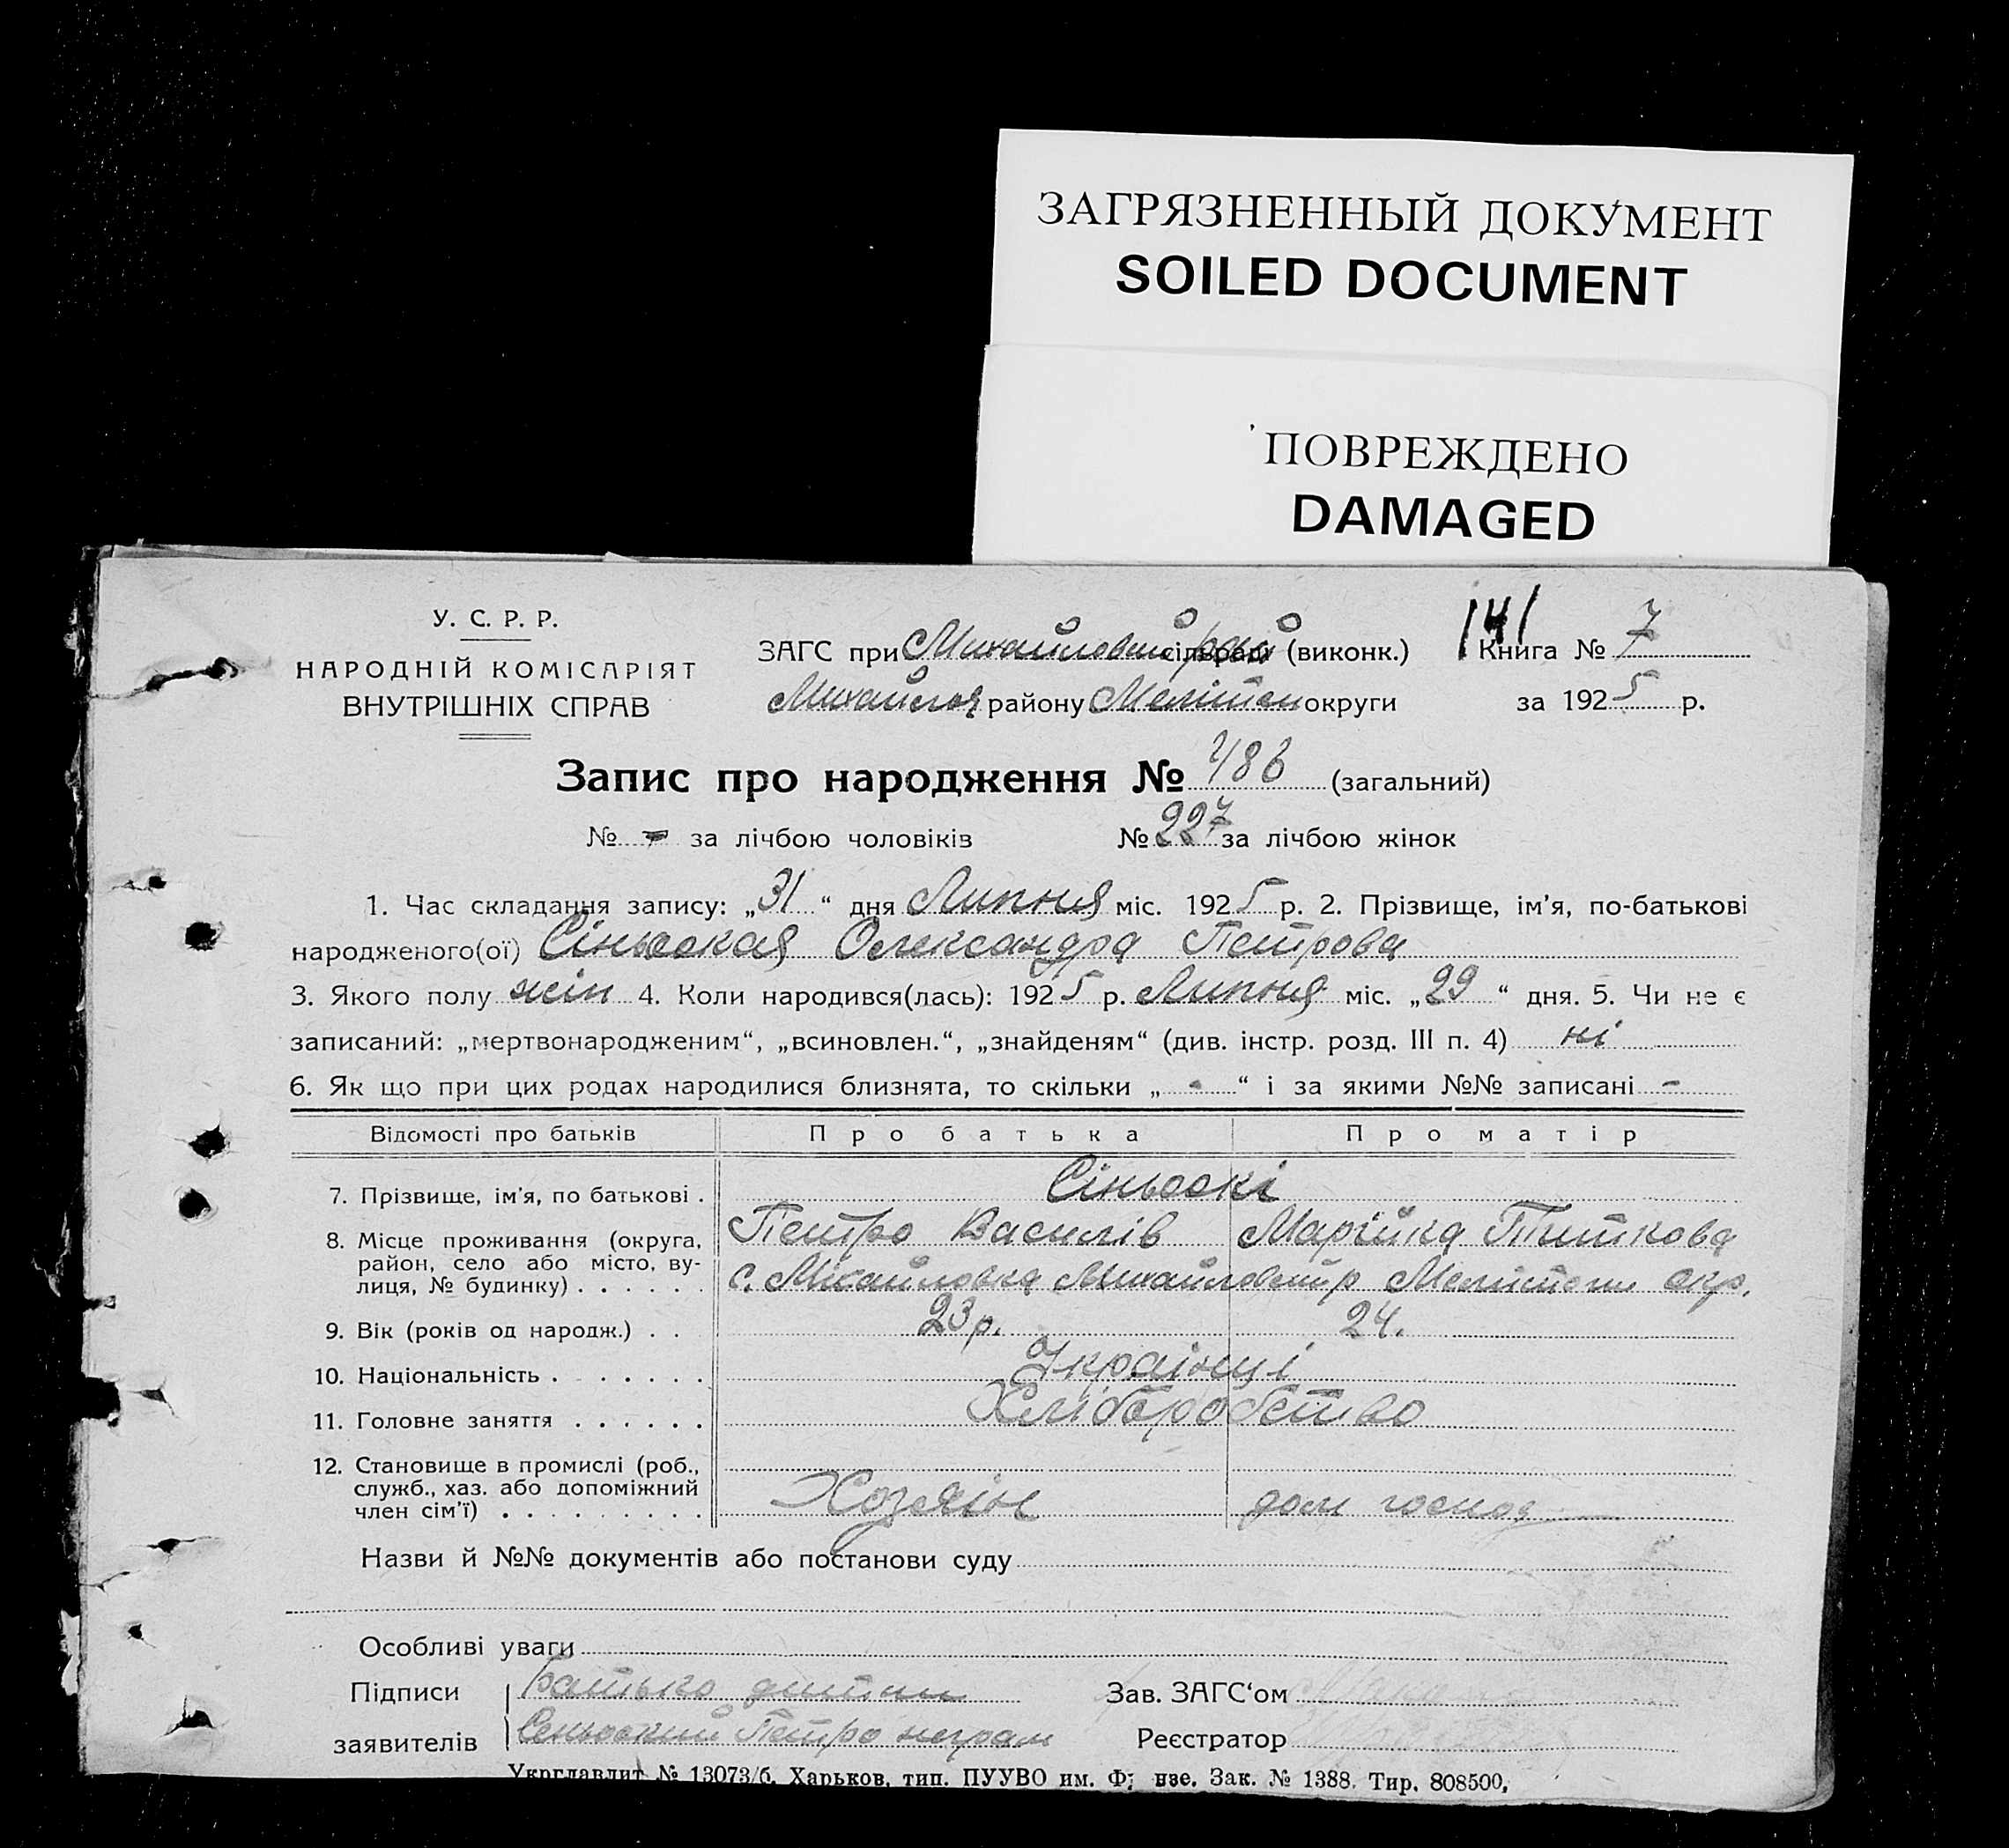 ЗАГРЯЗНЕННЫЙ ДОКУМЕНТ
SOILED DOCUMENT
ПОВРЕЖДЕНО
DAMAGED
У. С. Р. Р.
НАРОДНІЙ КОМІСАРІЯТ
ВНУТРІШНІХ СПРАВ
141
ЗАГС при сільраді (виконк.) Книга № 7
району округи за 1925 р.
Запис про народження № 486 (загальний)
№ - за лічбою чоловіків № 227 за лічбою жінок
1. Час складання запису: „31“ дня Липня міс. 1925 р. 2. Прізвище, ім’я, по-батькові
народженого(ої) Сіньоокая Олександра Петрова
3. Якого полу жін 4. Коли народився(лась): 1925 р. Липня міс. „29“ дня. 5. Чи не є
записаний: „мертвонародженим“, „всиновлен.“, „знайденям“ (див. інстр. розд. III п. 4) ні
6. Як що при цих родах народилися близнята, то скільки „ - “ і за якими №№ записані -
Відомості про батьків Про батька Про матір
7. Прізвище, ім’я, по батькові . Сіньоокі
Петро Василів Марійка Титкова
8. Місце проживання (округа,
район, село або місто, ву-
лиця, № будинку) . . . . . . с. Михайловка окр.
9. Вік (років од народж.) . . 23 р. 24.
10. Національність . . . . . . . Українці
11. Головне заняття . . . . . . Хліборобство
12. Становище в промислі (роб.,
служб., хаз. або допоміжний
член сім’ї) . . . . . . . . . Хозяїн дом госпо
Назви й №№ документів або постанови суду
Особливі уваги
Підписи Батько дитини Зав. ЗАГС‘ом
заявителів Сеньоокий Петро неграм Реєстратор
Укрглавлит № 13073/б. Харьков, тип. ПУУВО им. Ф нзе. Зак. № 1388. Тир. 808500,